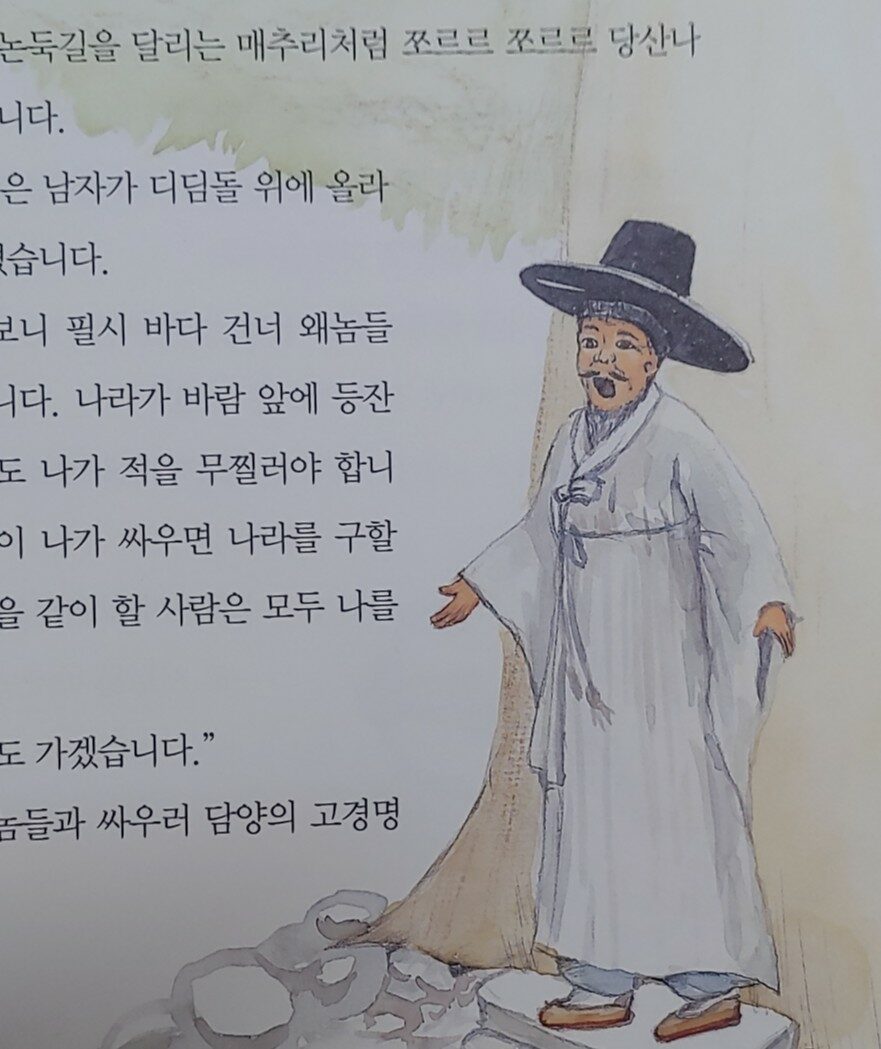 논둑길을 달리는 매추리처럼 쪼르르 쪼르르 당산나
니다.
은 남자가 디딤돌 위에 올라
습니다.
보니 필시 바다 건너 왜놈들
니다. 나라가 바람 앞에 등잔
도 나가 적을 무찔러야 합니
이 나가 싸우면 나라를 구할
을 같이 할 사람은 모두 나를
도 가겠습니다.”
놈들과 싸우러 담양의 고경명